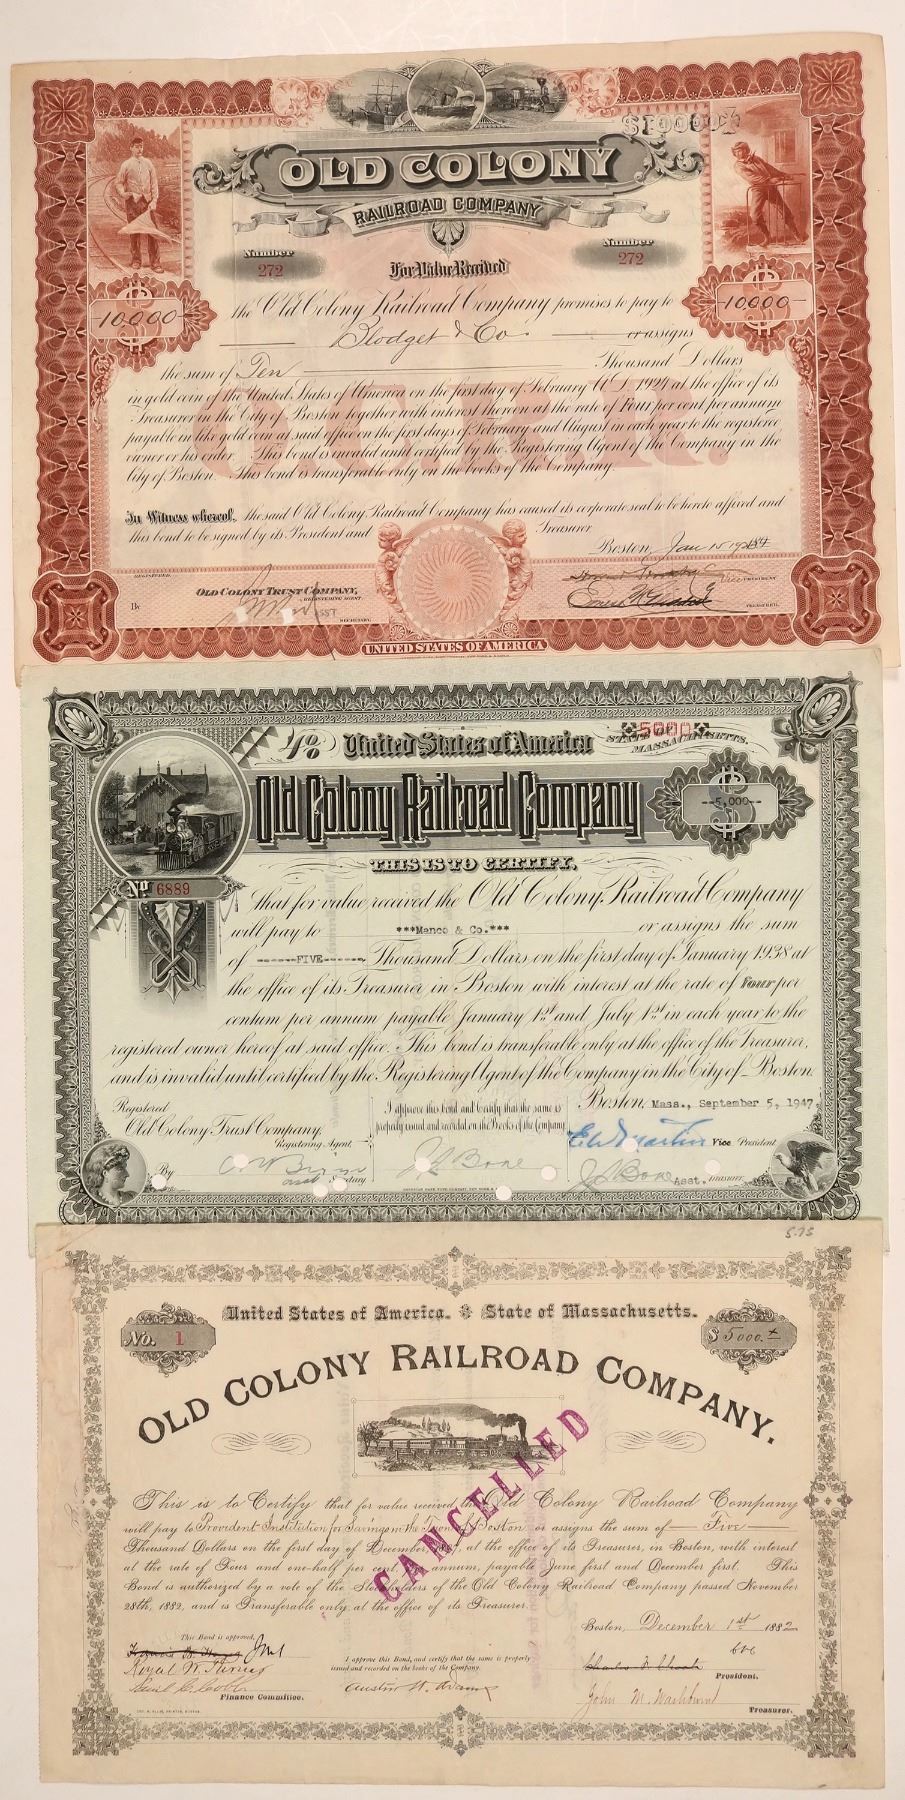 $10000
OLD COLONY
RAILROAD COMPANY
Number
272
Number
272
For Value Received
10,000
10000
the Old Colony Railroad Company promises to pay to
Blodget & Co. or assigns
the sum of Ten Thousand Dollars
in gold coin of the United States of America on the first day of February A.D. 1924 at the office of its
Treasurer in the City of Boston together with interest thereon at the rate of Four per cent per annum
payable in like gold coin at said office on the first days of February and August in each year to the registered
owner or his order. This bond is invalid until certified by the Registering Agent of the Company in the
City of Boston. This bond is transferable only on the books of the Company.
O.C.R.R.
In Witness whereof, the said Old Colony Railroad Company has caused its corporate seal to be hereto affixed and
this bond to be signed by its President and Treasurer
Boston, Jan 15 19
REGISTERED.
OLD COLONY TRUST COMPANY,
REGISTERING AGENT.
By
ASST
SECRETARY.
Vice PRESIDENT
TREASURER.
UNITED STATES OF AMERICA
4%
United States of America
STATE OF MASSACHUSETTS.
5000
Old Colony Railroad Company
--5,000--
THIS IS TO CERTIFY,
No. 6889
that for value received the Old Colony Railroad Company
will pay to ***Manco & Co.*** or assigns the sum
of ------FIVE------ Thousand Dollars on the first day of January 1938 at
the office of its Treasurer in Boston with interest at the rate of Four per
centum per annum payable January 1st and July 1st in each year to the
registered owner hereof at said office. This bond is transferable only at the office of the Treasurer,
and is invalid until certified by the Registering Agent of the Company in the City of Boston.
Registered
Old Colony Trust Company,
Registering Agent.
By
asst Secretary
I approve this bond and Certify that the same is
properly issued and recorded on the Books of the Company
J L Bone
Boston, Mass., September 5, 1947.
E W Martin Vice President
J L Bone Asst. Treasurer
5.75
United States of America. State of Massachusetts.
No. 1
$5000.
OLD COLONY RAILROAD COMPANY.
This is to Certify that for value received the Old Colony Railroad Company
will pay to Provident Institution for Savings in the Town of Boston or assigns the sum of Five
Thousand Dollars on the first day of December, at the office of its Treasurer, in Boston, with interest
at the rate of Four and one-half per cent. per annum, payable June first and December first. This
Bond is authorized by a vote of the Stockholders of the Old Colony Railroad Company passed November
28th, 1882, and is Transferable only at the office of its Treasurer.
CANCELLED
Boston, December 1st 1882
This Bond is approved,
Royal W. Turner
Saml C. Cobb
Finance Committee.
I approve this Bond, and certify that the same is properly
issued and recorded on the books of the Company.
Charles F. Choate
President.
John M. Washburn
Treasurer.
GEO. H. ELLIS, PRINTER, BOSTON.